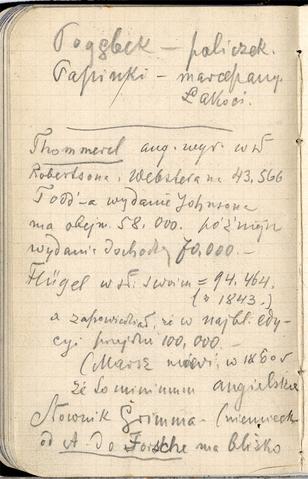 Pogębek – policzek.
Papinki – marcepany.
Łakoci.
Thommerel ang. wyr. w sł
Robertsona i Webstera na 43,566
Todd'a wydanie Johnsona
ma obejm. 58,000. późniejsze
wydanie dochodzą 70,000. –
Flügel w sł. swoim = 94.464.
(r 1843.)
a zapowiedział, że w najbl. edy-
cyi przejdzie 100,000. –
(Marsz mówi, w 1860 r
że to minimum angielskie
Słownik Grimma – (niemiecki
od A. do Forsche ma blisko